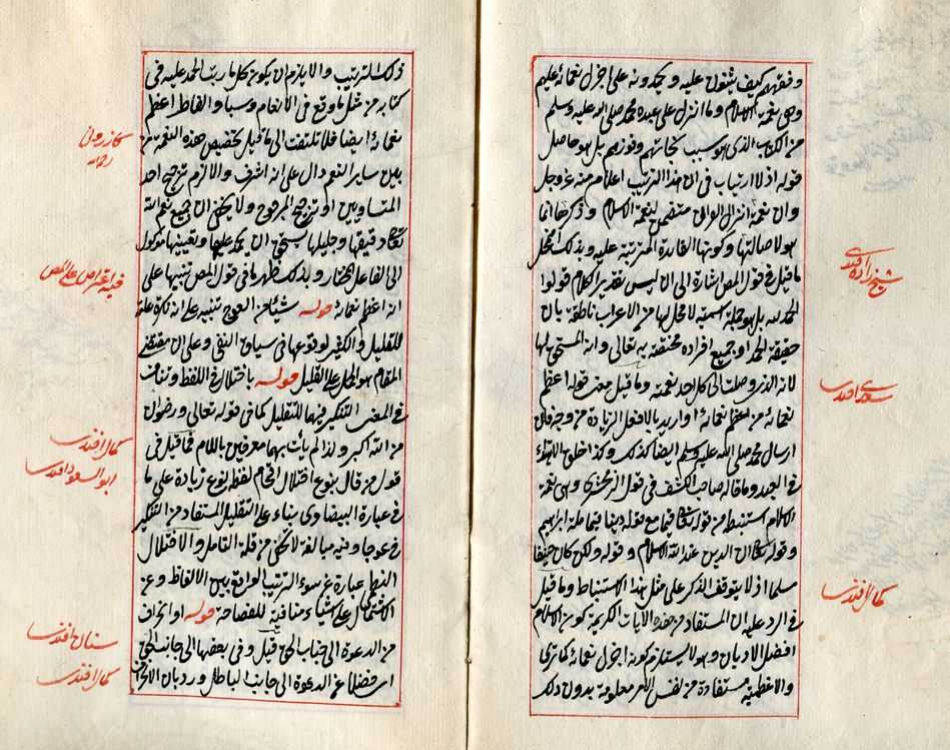 وفقهم كيف يثنون عليه ويحمدونه على اجزل نعمائه عليهم
وهى نعمة الاسلام وما انزل على عبده محمد صلى الله عليه وسلم
من الكتاب الذى هو سبب نجاتهم وفوزهم بل هو حاصل
قوله اذ لا ارتياب فى ان هذا الترتيب اعلام منه عز وجل
وان نعمة انزال القرآن متضمن لنعمة الاسلام وذكرها انما
هو لاصالتها وكونها الفائدة المترتبة عليه وبذلك انحل
شيخ زاده افندى
ما قيل فى قول المص اشارة الى ان ليس تقدير الكلام قولوا
الحمد لله بل هو جملة اسمية لا محل لها من الاعراب ناطقة بان
حقيقة الحمد او جميع افراده مختصة به تعالى وانه المستحق لها
سعدى افندى
لانه الذى وصلت الى كل احد نعمته وما قيل معنى قوله اعظم
نعمائه من اعظم نعمائه او اريد بالافعل الزيادة من وجه فان
ارسال محمد صلى الله عليه وسلم ايضا كذلك وكذا خلق الاهتداء
فى العبد وما قاله صاحب الكشف فى قول الزمخشرى وهى نعمة
الاسلام استنبط من قوله تعالى قيما مع قوله دينا قيما ملة ابراهيم
وقوله تعالى ان الدين عند الله الاسلام وقوله ولكن كان حنيفا
كمال افندى
مسلما اذ لا يتوقف الذكر على مثل هذا الاستنباط وما قيل
فى الرد عليه ان المستفاد من هذه الآيات الكريمة كون الاسلام
افضل الاديان وهو لا يستلزم كونه اجزل نعمائه كما ترى
والاعظمية مستفادة من نفس الامر معلومة بدون ذلك
ذلك الترتيب والا يلزم ان يكون كل ما رتب الحمد عليه فى
كتابه من مثل ما وقع فى الانعام وسبا والفاطر اعظم
كازرونى
رحمه
نعمائه ايضا فلا تلتفت الى ما قيل تخصيص هذه النعمة من
بين ساير النعم دال على انه اشرف والا لزم ترجيح احد
المتساويين او ترجيح المرجوح ولا يخفى ان جميع نعم الله
تعالى دقيقها وجليلها يستحق ان يحمد عليها وتعيينها موكول
فيه اعتراض على المص
الى الفاعل المختار وبذلك ظهر ما فى قول المص تنبيها على
انه اعظم نعمائه قوله شيئا من العوج تنبيه على انه نكرة
للتقليل والكثير لوقوعها فى سياق النفى وعلى ان مقتضى
المقام هو الحمل على القليل قوله باختلال فى اللفظ وتناف
فى المعنى التنكير فيهما للتقليل كما فى قوله تعالى ورضوان
كمال افندى
من الله اكبر ولذا لم يأت بهما معرفين باللام فما قيل فى
ابو السعود افندى
قول من قال بنوع اختلال اقحام لفظ نوع زيادة على ما
فى عبارة البيضاوى بناء على التقليل المستفاد من التنكير
فى عوجا وفيه مبالغة لا تخفى من قلة التامل والاختلال
النظمى عبارة عن سوء الترتيب الواقع بين الالفاظ وعن
الاشتمال على اشياء منافية للفصاحة قوله او انحراف
سنان افندى
من الدعوة الى جناب الحق قيل وفى بعضها الى جانب الحق
كمال افندى
اى فضلا عن الدعوة الى جانب الباطل ورد بان الانحراف